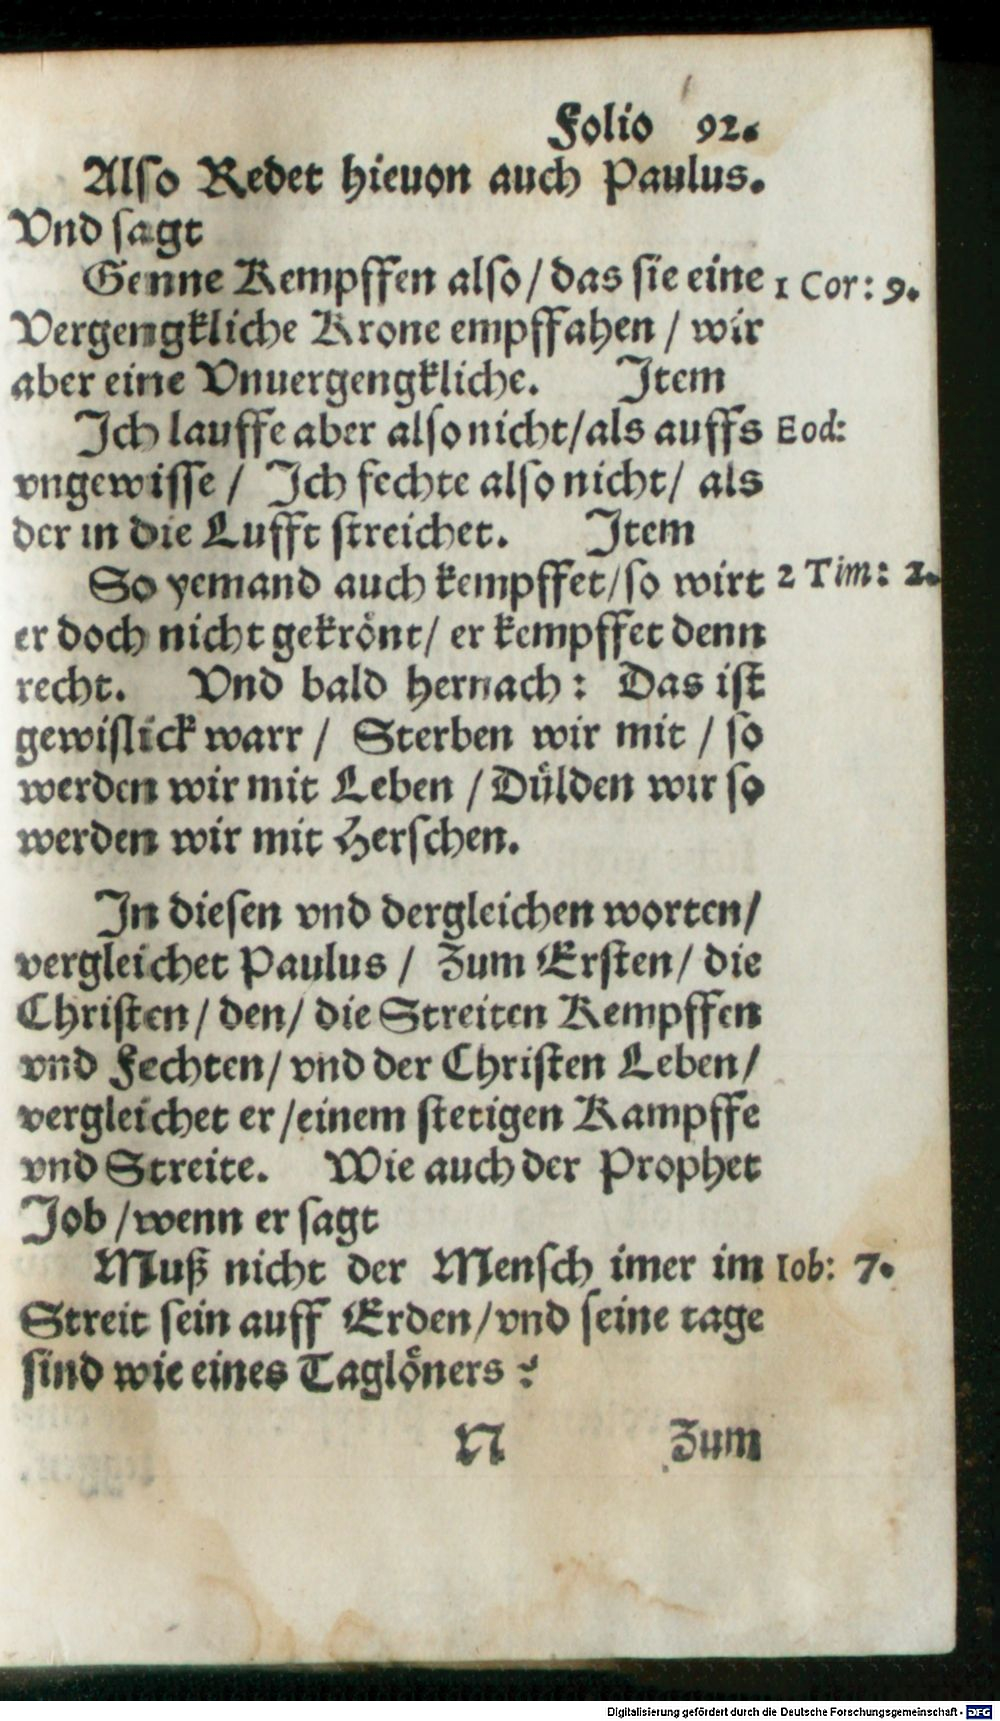 Folio 92.
Also Redet hieuon auch Paulus.
Vnd sagt
Genne Kempffen also/ das sie eine 1 Cor: 9.
Vergengkliche Krone empffahen / wir
aber eine Vnuergengkliche. Item
Ich lauffe aber also nicht/als auffs Eod:
vngewisse / Ich fechte also nicht/ als
der in die Lufft streichet. Item
So yemand auch kempffet/so wirt 2 Tim: 2.
er doch nicht gekrönt/ er kempffet denn
recht. Vnd bald hernach: Das ist
gewislick warr / Sterben wir mit / so
werden wir mit Leben / Dülden wir so
werden wir mit Herschen.
In diesen vnd dergleichen worten/
vergleichet Paulus / Zum Ersten/ die
Christen/ den/ die Streiten Kempffen
vnd Fechten/ vnd der Christen Leben/
vergleichet er /einem stetigen Kampffe
vnd Streite. Wie auch der Prophet
Job /wenn er sagt
Muß nicht der Mensch imer im Iob: 7.
Streit sein auff Erden/vnd seine tage
sind wie eines Taglöners?
N Zum
Digitalisierung gefördert durch die Deutsche Forschungsgemeinschaft - DFG